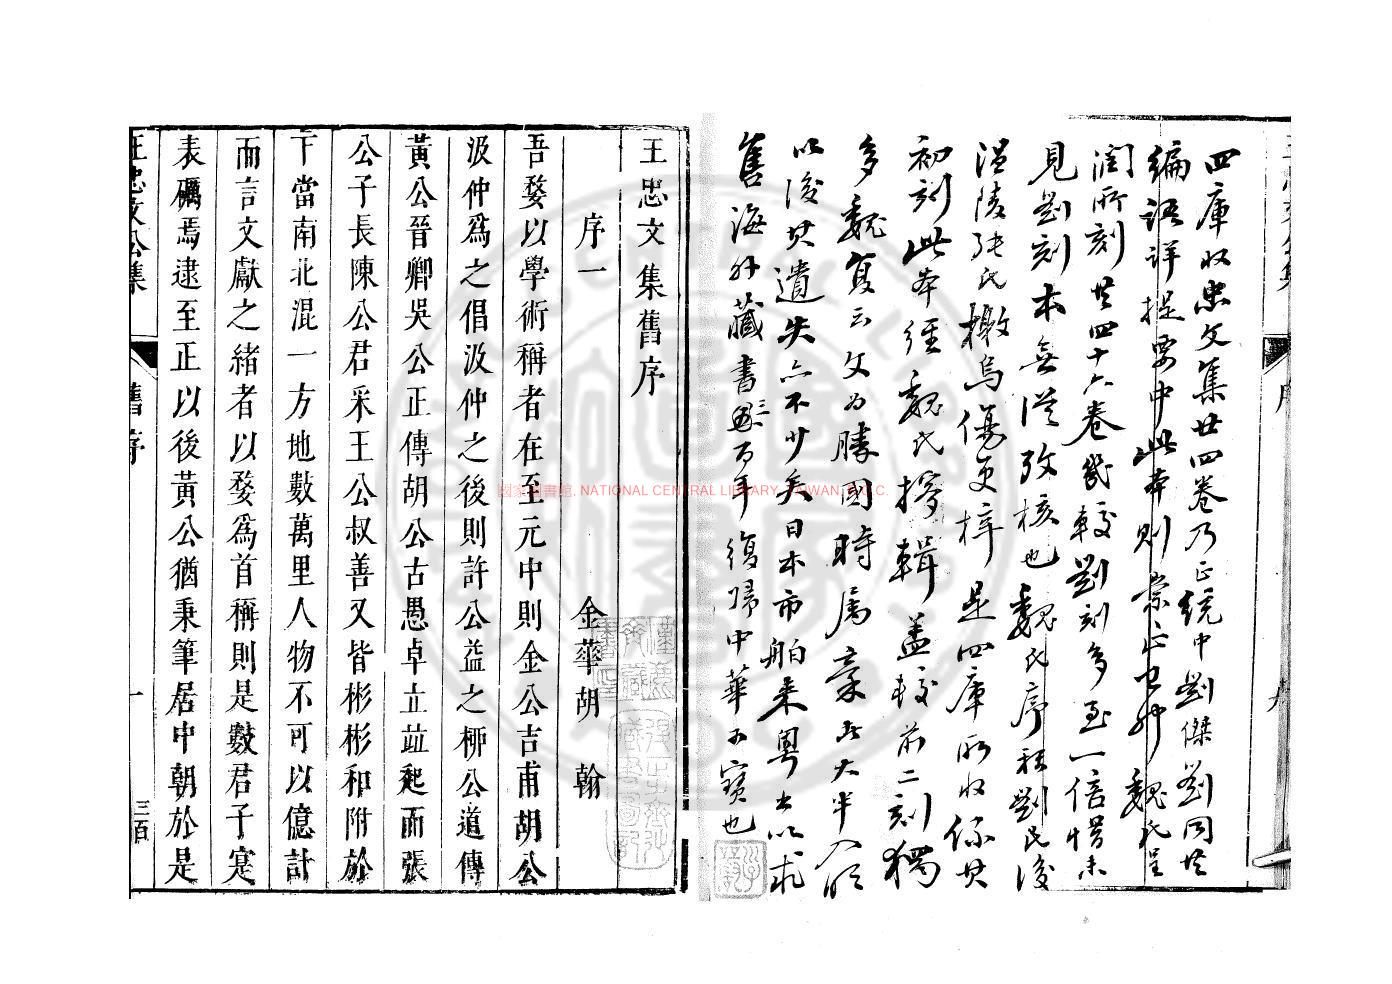 四庫收忠文集廿四卷乃正統中劉傑劉同共
編語詳提要中此本則崇正也 魏氏呈
潤所刻共四十六卷幾較劉刻多至一倍惜未
見劉刻本無從攷核也魏氏序稱劉氏後
溫陵張氏檄烏傷更梓是四庫所收係其
初刻此本經魏氏搜輯蓋較前二刻獨
多魏寘云文为勝國時属藁者大半入明
以後其遺失亦不少矣日本市舶来粵出以求
售海外藏書三百年復歸中華可寶也
王忠文集舊序
序一
金華胡翰
吾婺以學術稱者在至元中則金公吉甫胡公
汲仲爲之倡汲仲之後則許公益之柳公道傳
黃公晉卿吳公正傳胡公古愚卓立竝起而張
公子長陳公君采王公叔善又皆彬彬和附於
下當南北混一方地數萬里人物不可以億計
而言文獻之緒者以婺爲首稱則是數君子寔
表礪焉逮至正以後黃公猶秉筆居中朝於是
王忠文公集
舊序
一
三百
國家圖書館, NATIONAL CENTRAL LIBRARY, TAIWAN, R.O.C.